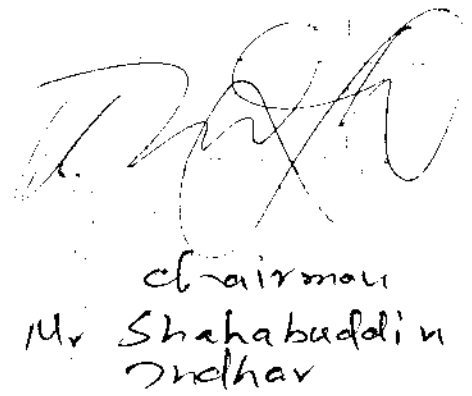 Chairman
Mr Shahabuddin
Indhar